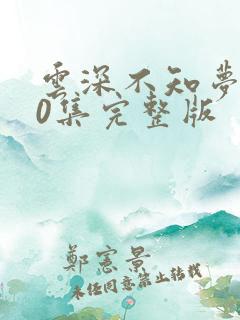 雲深不知夢
0集完整版
鄭憲景
未经同意禁止转载